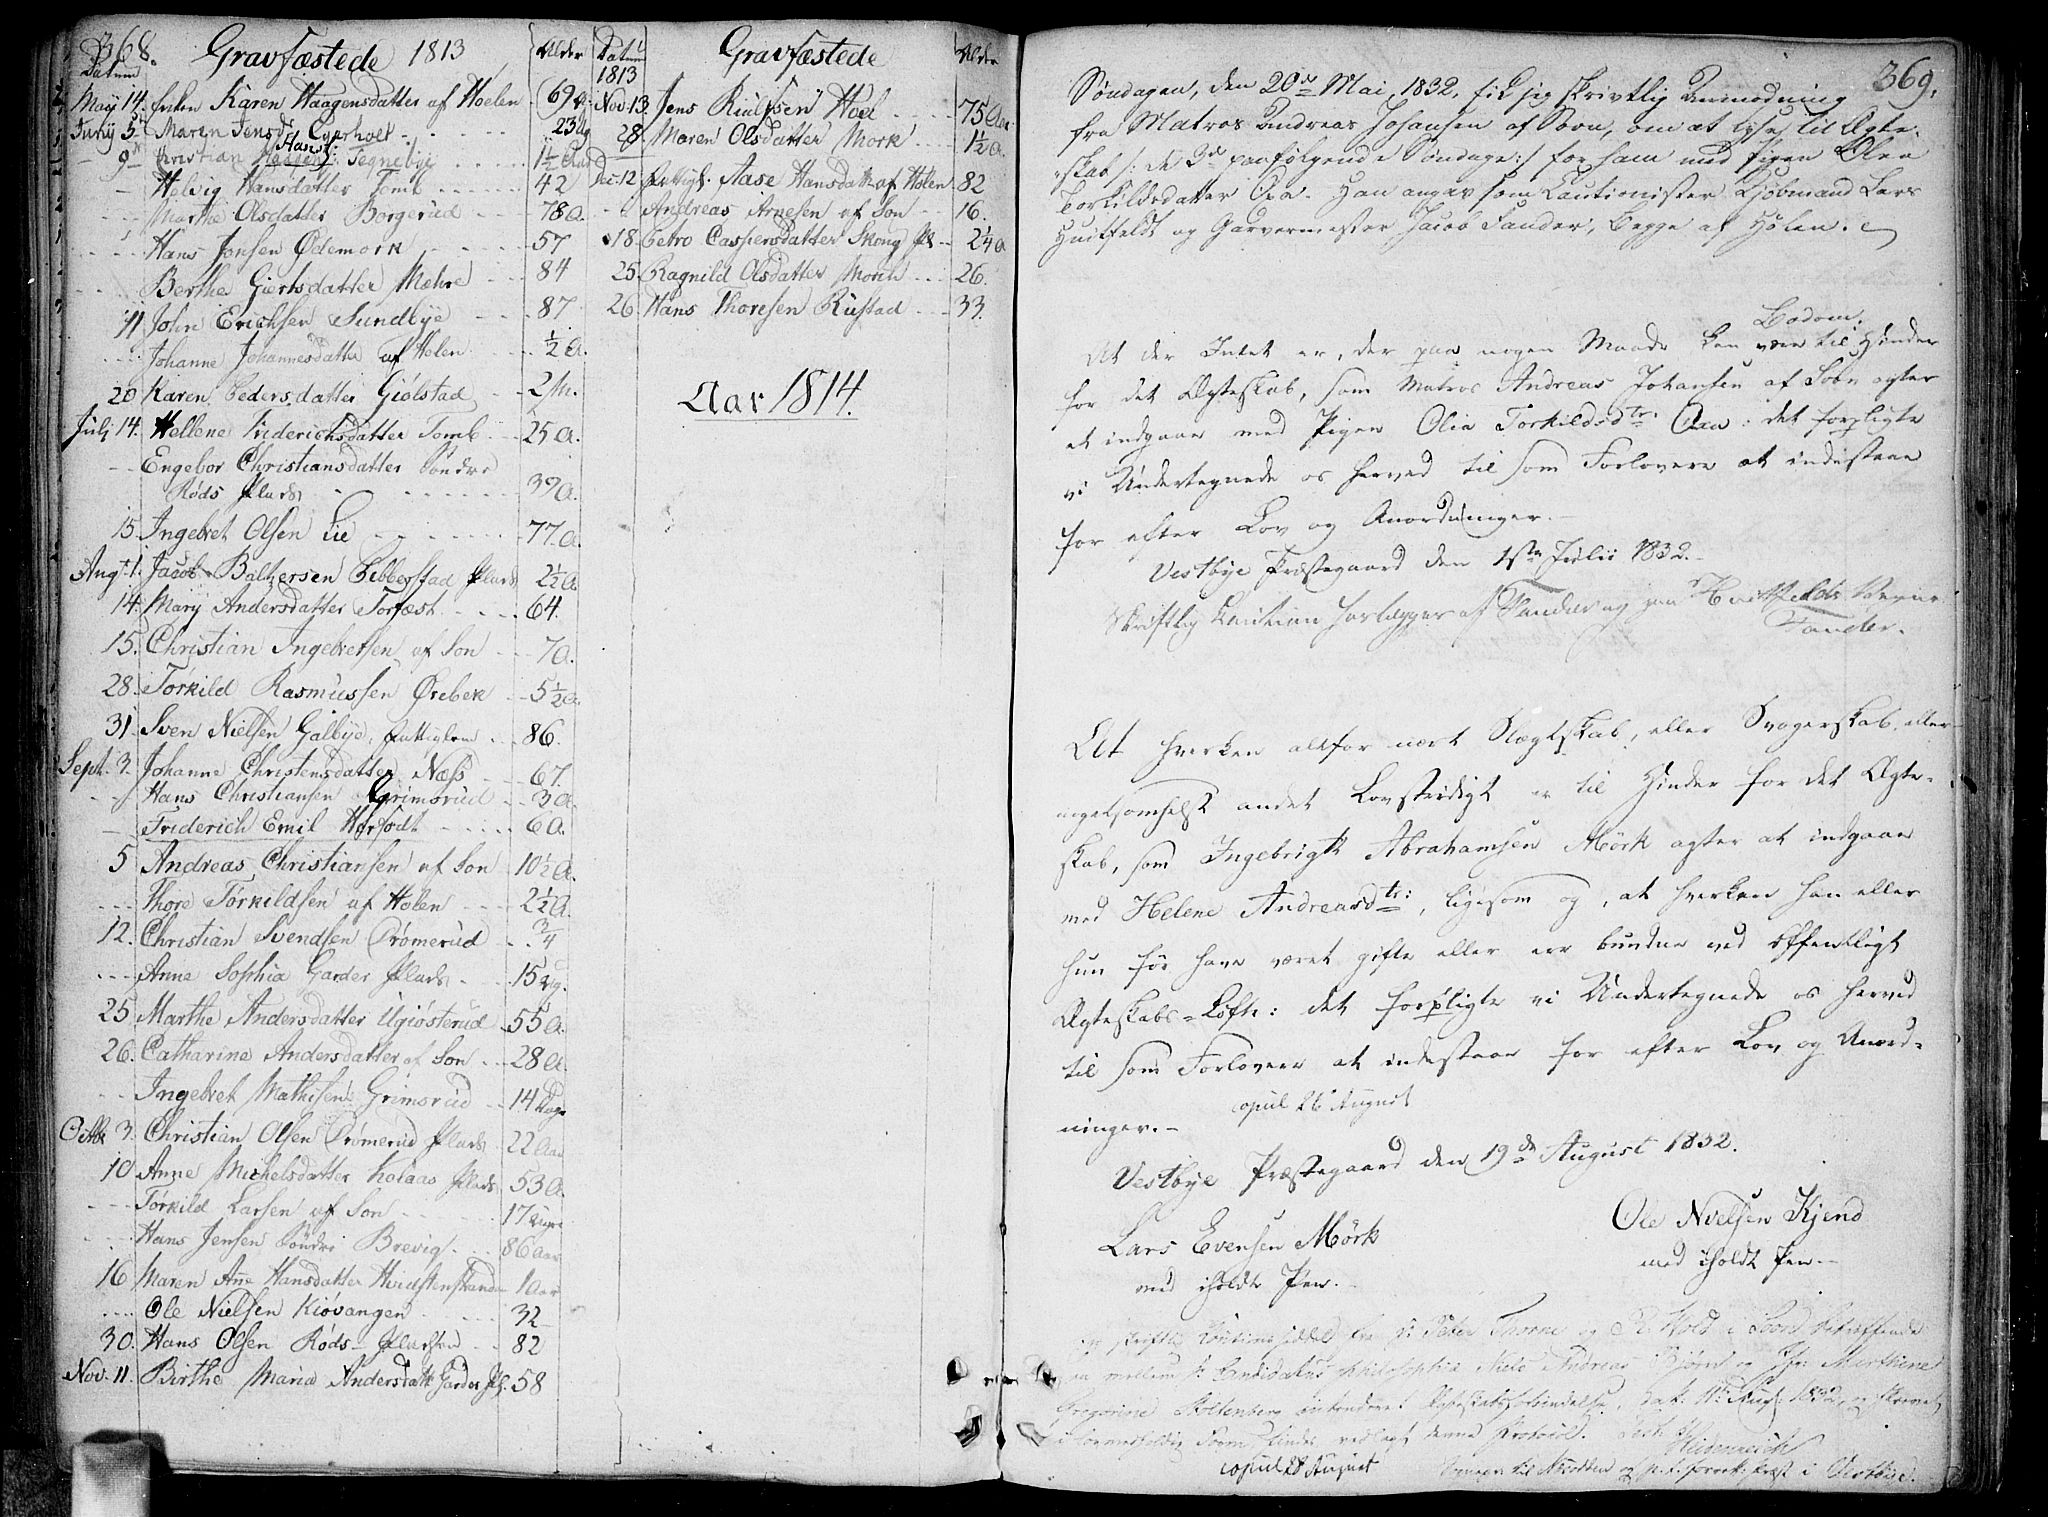 368.
Gravfæstede 1813
Alder
Datum
May 14. Enken Karen Haagensdatter af Hoelen 69 A.
Juny 5 Maren Jensd. Egerholt 23 A
9 Christian Hansen Tegnebye 1 1/2 Aar
Helvig Hansdatter Tomb 42
Marthe Olsdatter Borgerud 78 A.
Hans Jonsen Ødemork 57
Berthe Giertsdatter Mehre 84
11 John Erichsen Sundbye 87
Johanne Johannesdatter af Holen 1/2 A.
20 Karen Pedersdatter Giølstad 2 M.
Julj 14. Hellene Friderichsdatter Tomb 25 A.
Engebor Christiansdatter Søndre
Røds Plads 39 A.
15. Ingebret Olsen Lie 77. A.
Augt 1. Jacob Baltzersen Pebberstad Plads 2 1/2 A
14. Mary Andersdatter Torfæst 64.
15. Christian Ingebretsen af Son 70.
28. Torkild Rasmussen Ørebek 5 1/2 A
31. Sven Nielsen Galbye, fattiglem 86.
Sept. 3. Johanne Christensdatter Næss 67.
Hans Christiansen Grimsrud 3 A.
Friderich Emil Horsødt 6 A.
5 Andreas Christiansen af Son 10 1/2 A.
Thore Torkildsen af Holen 2 1/2 A.
12. Christian Svendsen Prømerud 3/4
Anne Sophia Garder Plads 15 Dg.
25 Marthe Andersdatter Ugiøsterud 55 A.
26. Catharine Andersdatter af Son 28 A.
Ingebret Mathisen Grimsrud 14 Dage
Octbr 3. Christian Olsen Prømerud Plads 22 Aar
10 Anne Michelsdatter Kolaas Plads 53 A.
Torkild Larsen af Son 17 Dage
Hans Jensen Søndre Brevig 86 Aar
16 Maren Añe Hansdatter Hvidstenstranden 1 Aar
Ole Nielsen Kiøvangen 32
30. Hans Olsen Røds-Pladsen 82
Nov. 11. Birthe Maria Andersdatt. Garder Pl. 58
Datum
1813
Gravfæstede
Alder
Nov. 13 Jens Riulfsen Hoel 75 Aar
28 Maren Olsdatter Mork 1 1/2 A.
Dec. 12 Fattigl. Aase Hansdatt. af Holen 82
Andreas Arnesen af Son 16.
18 Petro Caspersdatter Skong Pl. 2 1/4 A
25. Ragnild Olsdatter Morch 26.
26. Hans Thoresen Rustad 33.
Aar 1814.
369.
Søndagen, den 20de Mai, 1832, fik jeg skrivtlig Anmodning
fra Matros Andreas Johansen af Soon, om at lyse til Ægte-
skab /: de 3de paafølgende Søndage :/ for ham med Pigen Olea
Torkildsdatter Oxa. Han angav som Cautionister Kjøbmand Lars
Huitfeldt og Garvermester Jacob Fander, begge af Hølen.
Bodom.
At der Intet er, der paa nogen Maade kan være til Hinder
for det Ægteskab, som Matros Andreas Johansen af Sobn agter
at indgaae med Pigen Olia Torkildsdtr: Oxa: det forpligte
vi Undertegnede os herved til som Forlovere at indestaae
for efter Lov og Anordninger.
Vestbye Præstegaard den 1ste Julii 1832.
Skriftlig Caution forlægges af Fander og paa Huitfeldts Vegne
Fander.
At hverken altfor nært Slægtskab, eller Svogerskab, eller
nogetsomhelst andet Lovstridigt er til Hinder for det Ægte-
skab, som Ingebrigtt Abrahamsen Mørk agter at indgaae
med Helene Andreasdtr:, ligesom og, at hverken han eller
hun før have været gifte eller ere bundne ved offentligt
Ægteskabs-Løfte: det forpligte vi Undertegnede os herved
til som Forlovere at indestaae for efter Lov og Anord-
ninger.-
copul 26 August
Vestbye Præstegaard den 19de August 1832.
Lars Evensen Mørk
med iholdt Pen.
Ole Nielsen Kjend
med iholdt Pen.
skriftlig Cautions seddel fra Hr. Peter Thorne og Wold i Soon betræffende
mellem Hr. Candidatus philosophiæ Niels Andreas Bjørn og Jfr. Marthine
Gregorine Stoltenberg intenderet Ægteskabsforbindelse, Dat: 11te Aug: 1832, og skrevet
i lovmæssig Form, findes vedlagt denne Protocol. Test
Heidenreich
copul 28 August
Sognepr. til Mos og p. t. Præst i Vestbye.